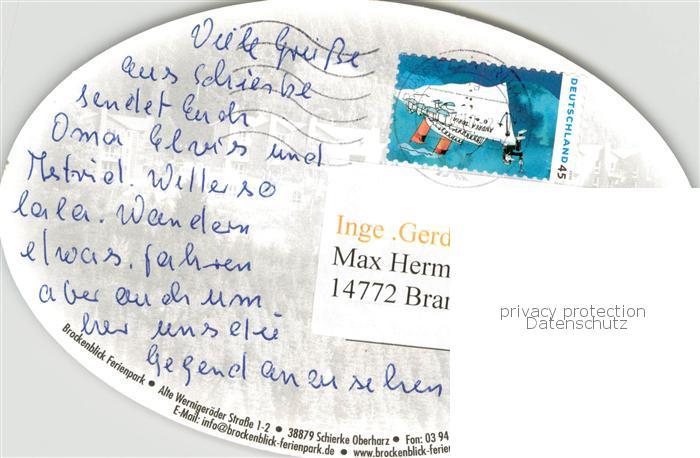 Viele Grüße
aus Schierke
sendet Euch
Oma Elvis und
Astrid. Wetter so
lala. Wandern
etwas. fahren
aber auch um
her uns die
Gegend anzusehen
DEUTSCHLAND 45
Inge .Gerd
Max Herm
14772 Bran
privacy protection
Datenschutz
Brockenblick Ferienpark • Alte Wernigeröder Straße 1-2 • 38879 Schierke Oberharz • Fon: 03 94
E-Mail: info@brockenblick-ferienpark.de • www.brockenblick-ferien